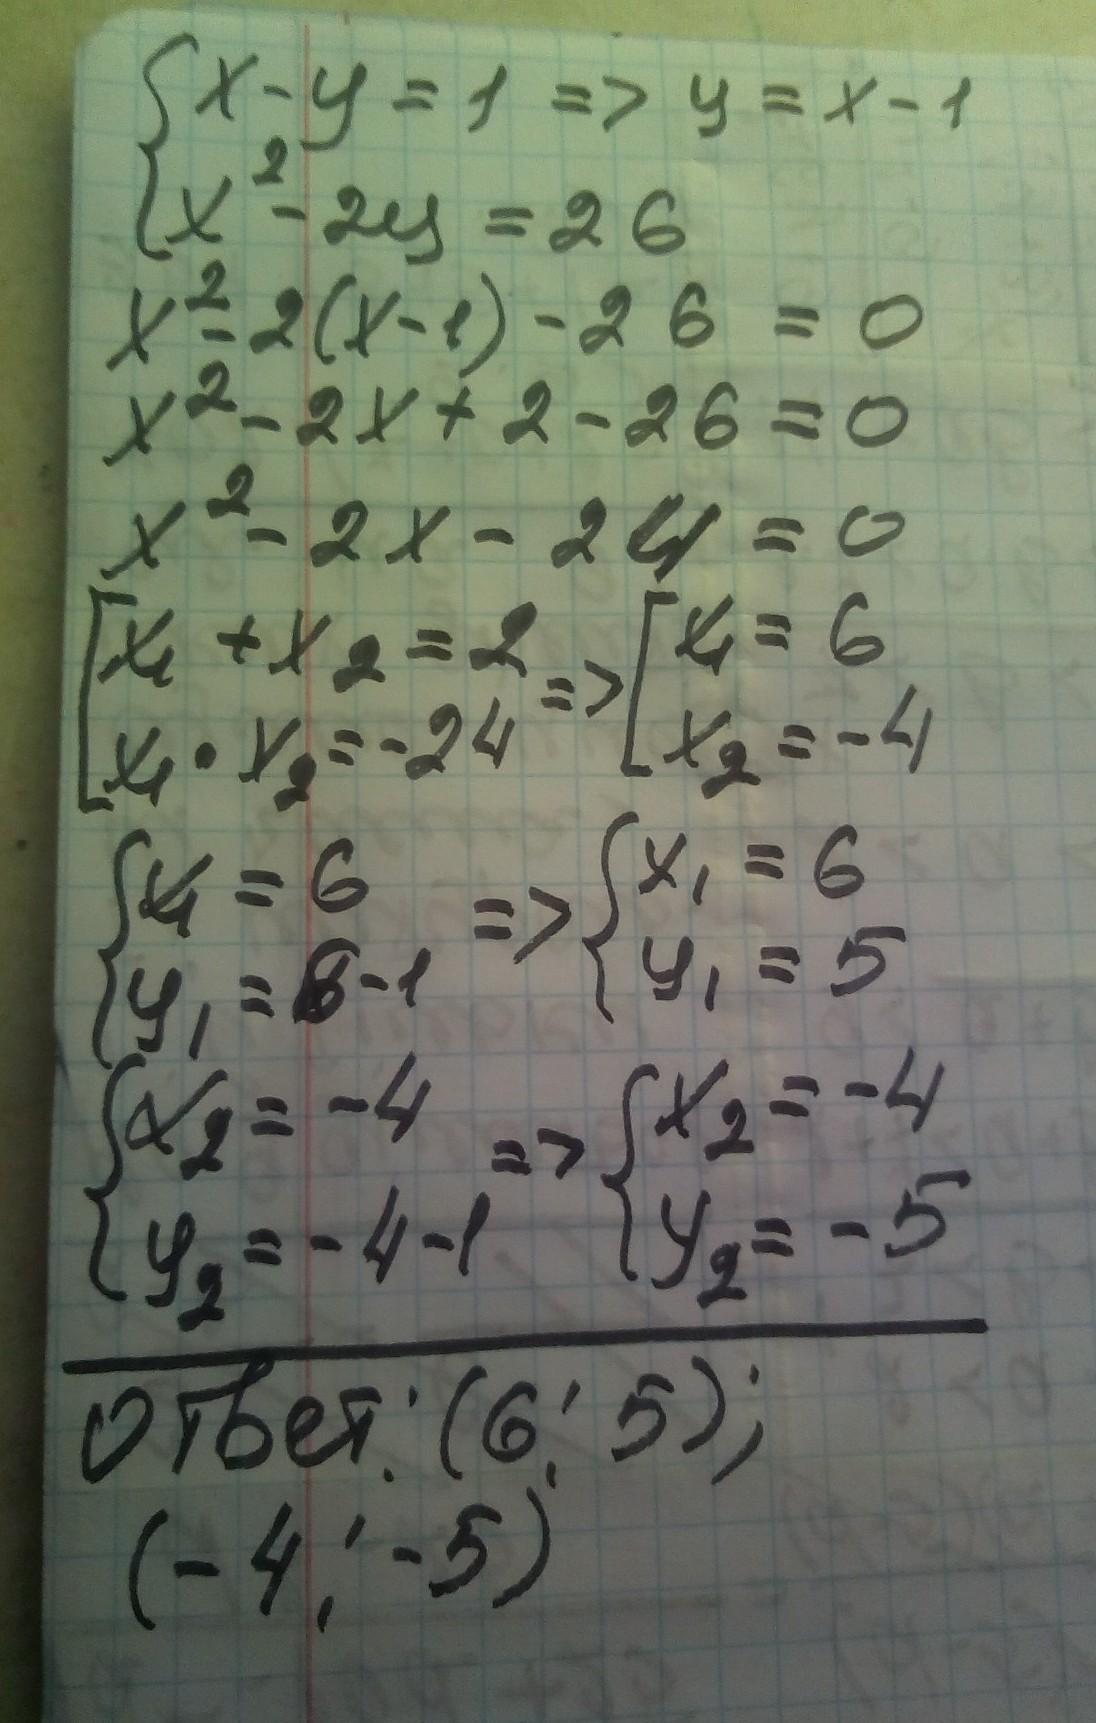 {x - y = 1 => y = x - 1
{x² - 2y = 26
x² - 2(x - 1) - 26 = 0
x² - 2x + 2 - 26 = 0
x² - 2x - 24 = 0
[x₁ + x₂ = 2 => [x₁ = 6
[x₁ · x₂ = -24 [x₂ = -4
{x₁ = 6 => {x₁ = 6
{y₁ = 6 - 1 {y₁ = 5
{x₂ = -4 => {x₂ = -4
{y₂ = -4 - 1 {y₂ = -5
Ответ: (6; 5);
(-4; -5)